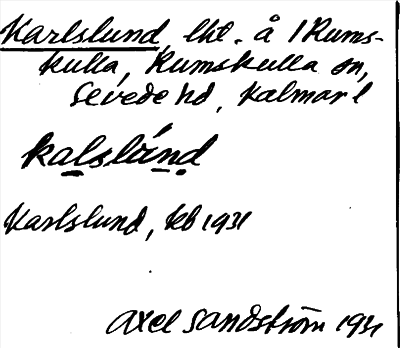 Karlslund, lht. å 1 Rums-
kulla, Rumskulla sn,
Sevede hd, Kalmar l
kalslúnd
Karlslund, kb 1931
Axel Sandström 1931